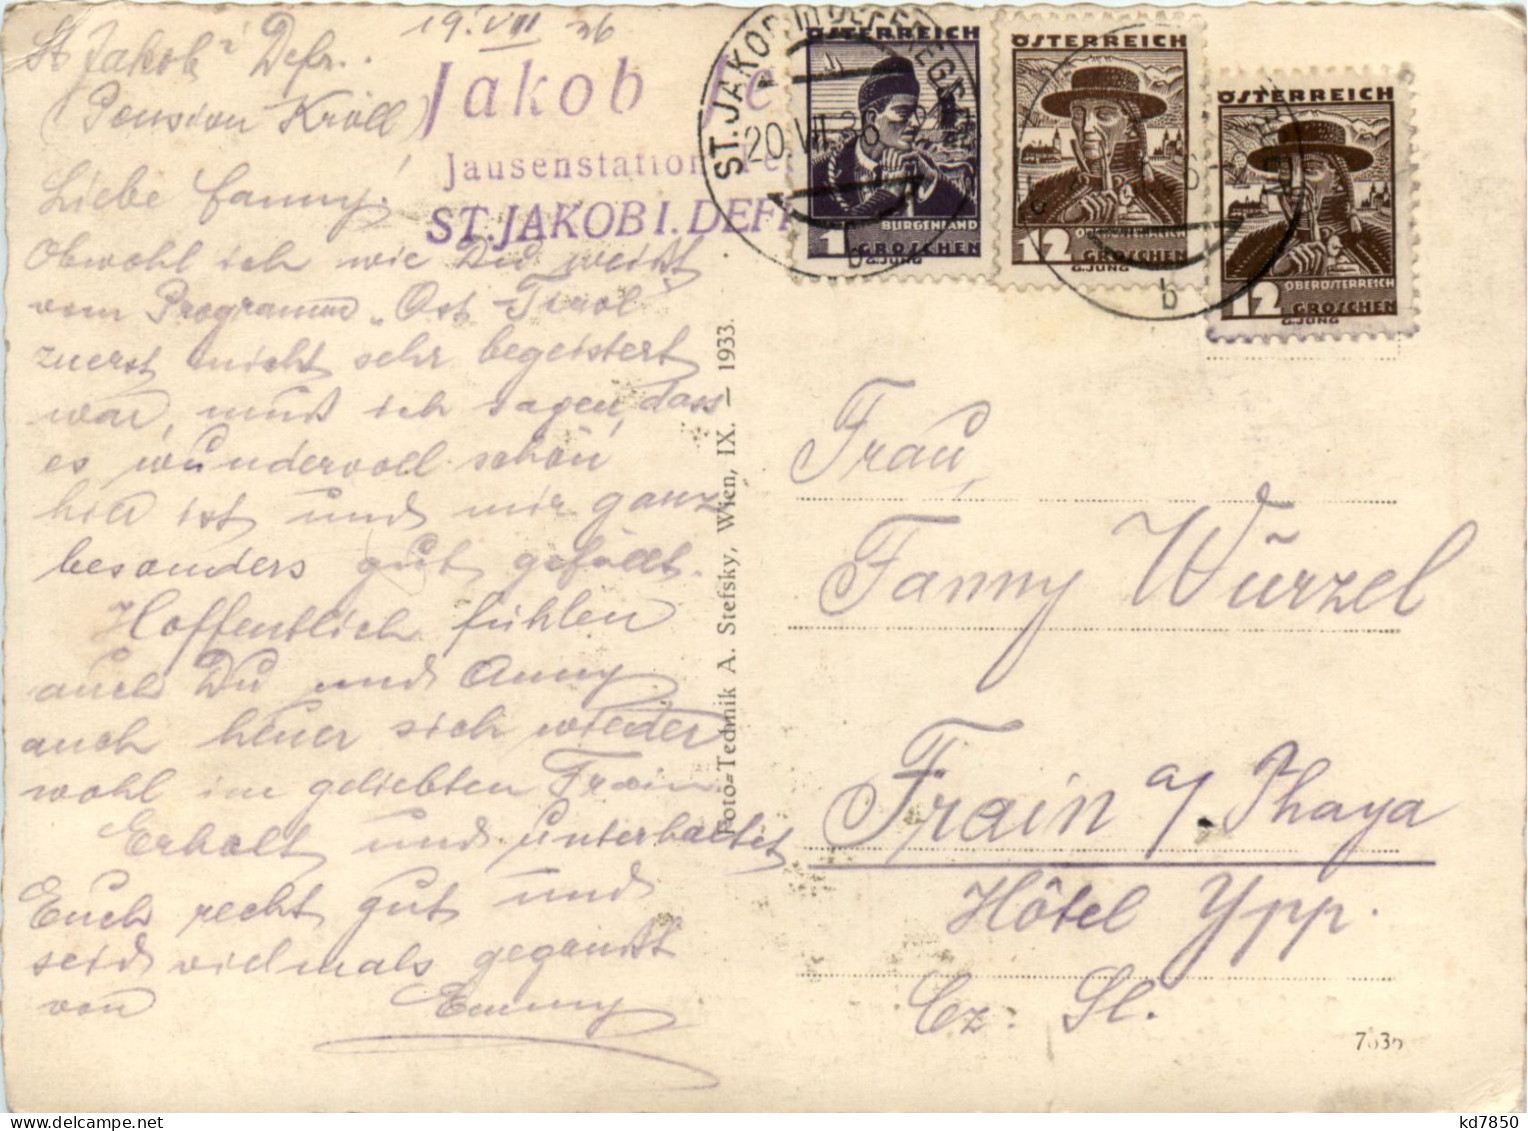 St. Jakob i Defr.
19. VIII 36
(Pension Kröll)
Jakob
Jausenstation
ST. JAKOB I. DEF
Liebe Fanny!
Obwohl ich wie Du weißt
vom Programm „Ost-Tirol"
zuerst nicht sehr begeistert
war, muß ich sagen, dass
es wundervoll schön
hier ist und mir ganz
besonders gut gefällt.
Hoffentlich fühlen
auch Du und Anny
auch heuer sich wieder
wohl im geliebten Frain.
Erholt und unterhaltet
Euch recht gut und
seid vielmals gegrüßt
von Emmy
Foto=Technik A. Stefsky, Wien, IX. — 1933.
ST. JAKOB IN DEFEREGGEN
20.VIII.36
b
ÖSTERREICH
BURGENLAND
1 GROSCHEN
G.JUNG
ÖSTERREICH
OBERÖSTERREICH
12 GROSCHEN
G.JUNG
b
ÖSTERREICH
OBERÖSTERREICH
12 GROSCHEN
G.JUNG
Frau
Fanny Wurzel
Frain a/Thaya
Hôtel Ypp.
Cz. Sl.
kd7850